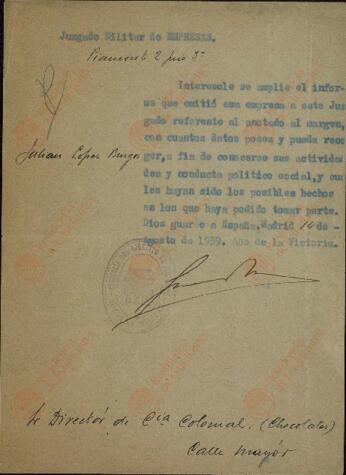 Juzgado Militar de EMPRESAS.
Piamonte 2 piso 3º
Interesole se amplie el infor-
me que emitió esa empresa a este Juz
gado referente al anotado al margen,
con cuantos datos posea y pueda reco
ger, a fin de conocerse sus activida
des y conducta politico social, y cua
les hayan sido los posibles hechos
en los que haya podido tomar parte.
Dios guarde a España. Madrid 14 de-
agosto de 1939. Año de la Victoria.
Julian Lopez Burgos
Sr Director de Cia Colonial. (Chocolates)
Calle Mayór